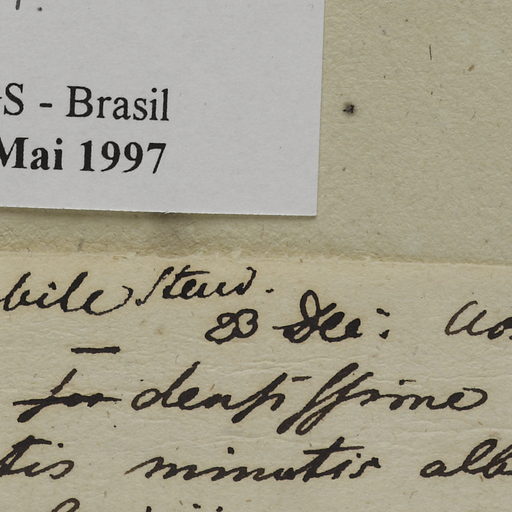 S - Brasil
Mai 1997
bile Steud.
23 Dec:
for densissime
tis minutis alb